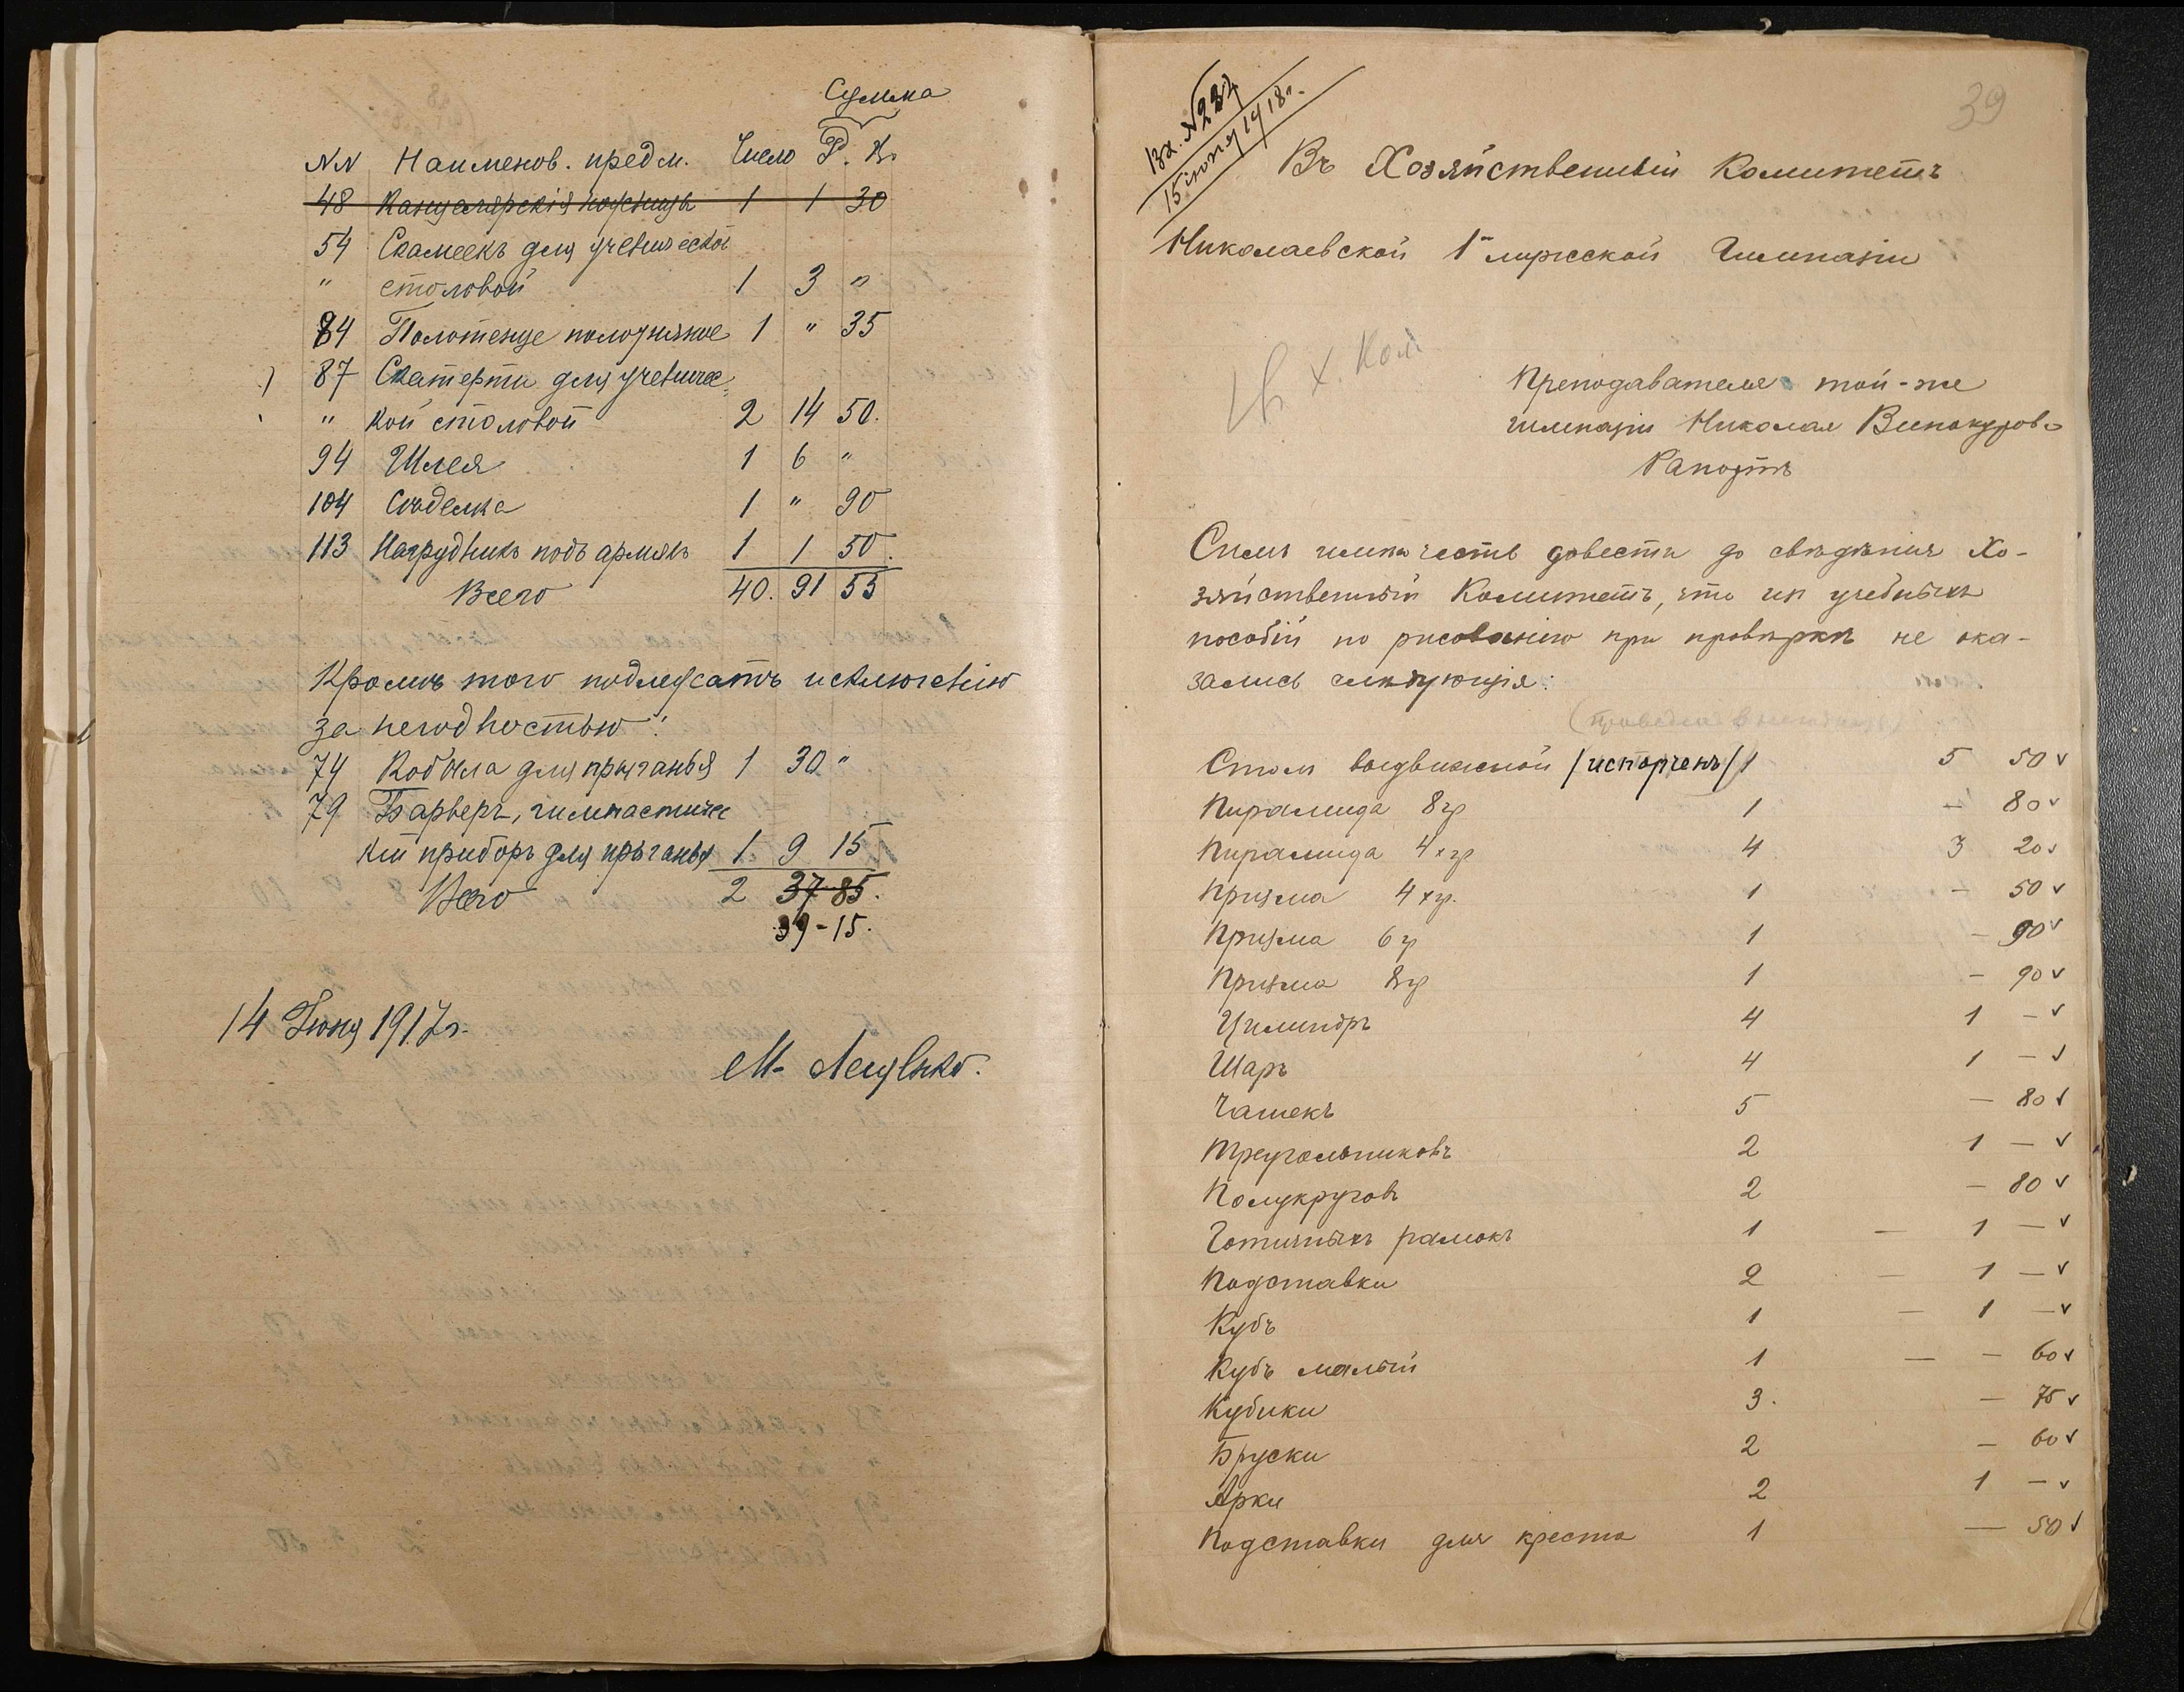 Сумма
NN Наименов. предм. Число Р. К.
48 Канцелярскія ножницы 1 1 30
54 Скамеекъ для ученической
" столовой 1 3 "
84 Полотенце полотняное 1 " 35
87 Скатерти для ученичес-
" кой столовой 2 14 50.
94 Шлея 1 6 "
104 Сѣделка 1 " 90
113 Нагрудникъ подъ армякъ 1 1 50.
Всего 40. 91 55
Кромѣ того подлежатъ исключенію
за негодностью:
74 Кобыла для прыганья 1 30 "
79 Барьеръ, гимнастичес
кій приборъ для прыганья 1 9 15
Всего 2 37 85.
39-15.
14 Іюня 1917г.
М.
39
Вх. №
15 іюня 1918г.
Въ Хозяйственный Комитетъ
Николаевской 1й мужской Гимназіи
х. Ком
Преподавателя той-же
гимназіи Николая Винокурова
Рапортъ
Симъ имѣю честь довести до свѣдѣнія Хо-
зяйственный Комитетъ, что из учебныхъ
пособій по рисованію при провѣркѣ не ока-
зались слѣдующія:
Столъ выдвижной /испорченъ/ 1 5 50 v
Пирамида 8гр 1 — 80 v
Пирамида 4хгр 4 3 20 v
Призма 4хгр. 1 — 50 v
Призма 6гр 1 — 90 v
Призма 8гр 1 — 90 v
Цилиндръ 4 1 — v
Шаръ 4 1 — v
Чашекъ 5 — 80 v
Треугольниковъ 2 1 — v
Полукруговъ 2 — 80 v
Готичныхъ рамокъ 1 — 1 — v
Подставки 2 — 1 — v
Кубъ 1 — 1 — v
Кубъ малый 1 — — 60 v
Кубики 3. — 75 v
Бруски 2 — 60 v
Арки 2 1 — v
Подставки для креста 1 — 50 v